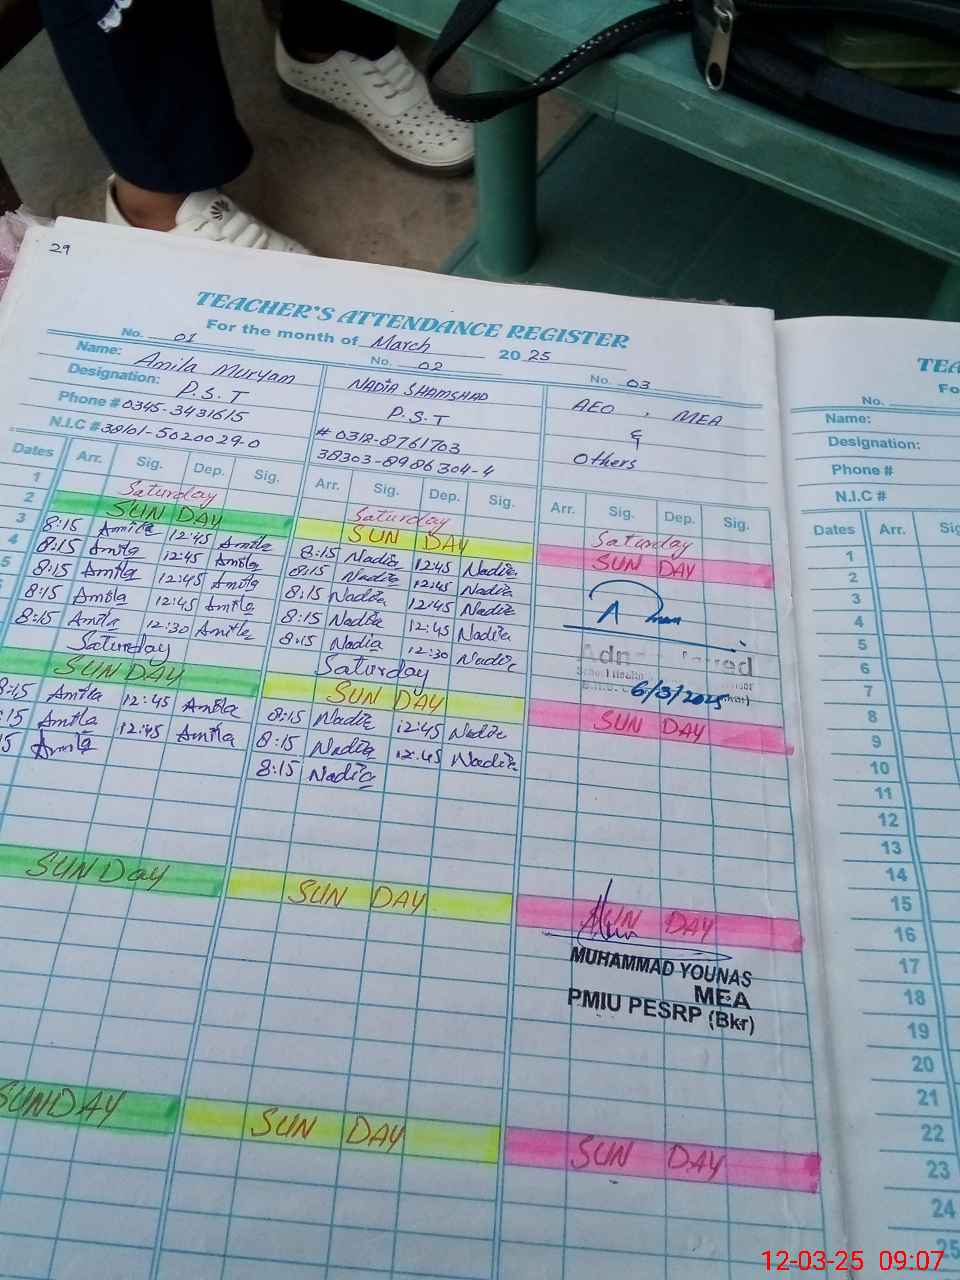 29
TEACHER'S ATTENDANCE REGISTER
For the month of March 20 25
No. 01 No. 02 No. 03
Name: Amila Muryam NADIA SHAMSHAD AEO , MEA
Designation: P.S.T P.S.T &
Phone # 0345-3431615 # 0312-8761703 Others
N.I.C # 38101-5020029-0 38303-8986304-4
Dates Arr. Sig. Dep. Sig. Arr. Sig. Dep. Sig. Arr. Sig. Dep. Sig.
1 Saturday Saturday Saturday
2 SUN DAY SUN DAY SUN DAY
3 8:15 Amila 12:45 Amila 8:15 Nadia 12:45 Nadia
4 8:15 Amila 12:45 Amila 8:15 Nadia 12:45 Nadia
5 8:15 Amila 12:45 Amila 8:15 Nadia 12:45 Nadia
8:15 Amila 12:45 Amila 8:15 Nadia 12:45 Nadia
8:15 Amila 12:30 Amila 8:15 Nadia 12:30 Nadia
Saturday Saturday
6/3/2025
SUN DAY SUN DAY SUN DAY
8:15 Amila 12:45 Amila 8:15 Nadia 12:45 Nadia
:15 Amila 12:45 Amila 8:15 Nadia 12:45 Nadia
5 Amila 8:15 Nadia
SUN Day SUN DAY SUN DAY
MUHAMMAD YOUNAS
MEA
PMIU PESRP (Bkr)
SUNDAY SUN DAY SUN DAY
TEA
Fo
No.
Name:
Designation:
Phone #
N.I.C #
Dates Arr. Sig
1
2
3
4
5
6
7
8
9
10
11
12
13
14
15
16
17
18
19
20
21
22
23
24
25
12-03-25 09:07